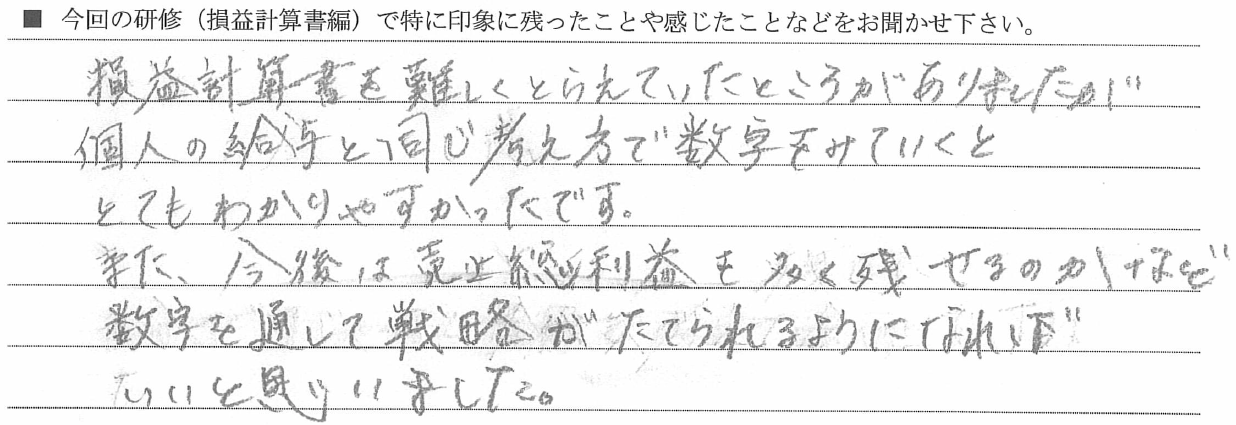 ■ 今回の研修（損益計算書編）で特に印象に残ったことや感じたことなどをお聞かせ下さい。
損益計算書を難しくとらえていたところがありましたが
個人の給与と同じ考え方で数字をみていくと
とてもわかりやすかったです。
また、今後は売上総利益を多く残せるのかなど
数字を通して戦略がたてられるようになれば
いいと思いました。